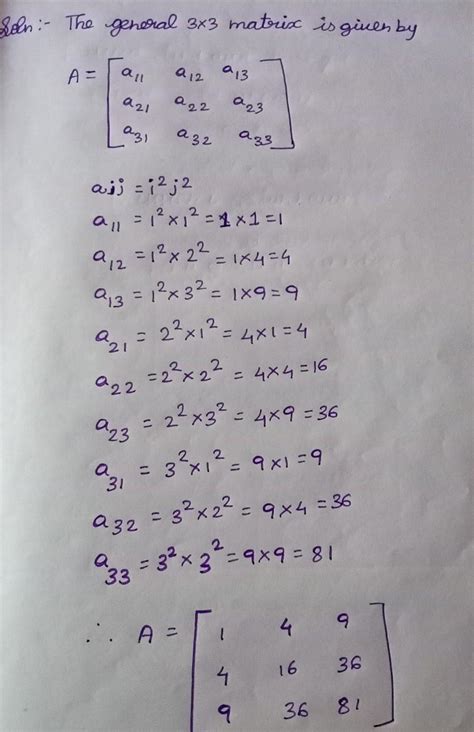 Soln:- The general 3×3 matrix is given by
A = [ a₁₁ a₁₂ a₁₃
a₂₁ a₂₂ a₂₃
a₃₁ a₃₂ a₃₃ ]
aij = i²j²
a₁₁ = 1² × 1² = 1 × 1 = 1
a₁₂ = 1² × 2² = 1 × 4 = 4
a₁₃ = 1² × 3² = 1 × 9 = 9
a₂₁ = 2² × 1² = 4 × 1 = 4
a₂₂ = 2² × 2² = 4 × 4 = 16
a₂₃ = 2² × 3² = 4 × 9 = 36
a₃₁ = 3² × 1² = 9 × 1 = 9
a₃₂ = 3² × 2² = 9 × 4 = 36
a₃₃ = 3² × 3² = 9 × 9 = 81
∴ A = [ 1 4 9
4 16 36
9 36 81 ]